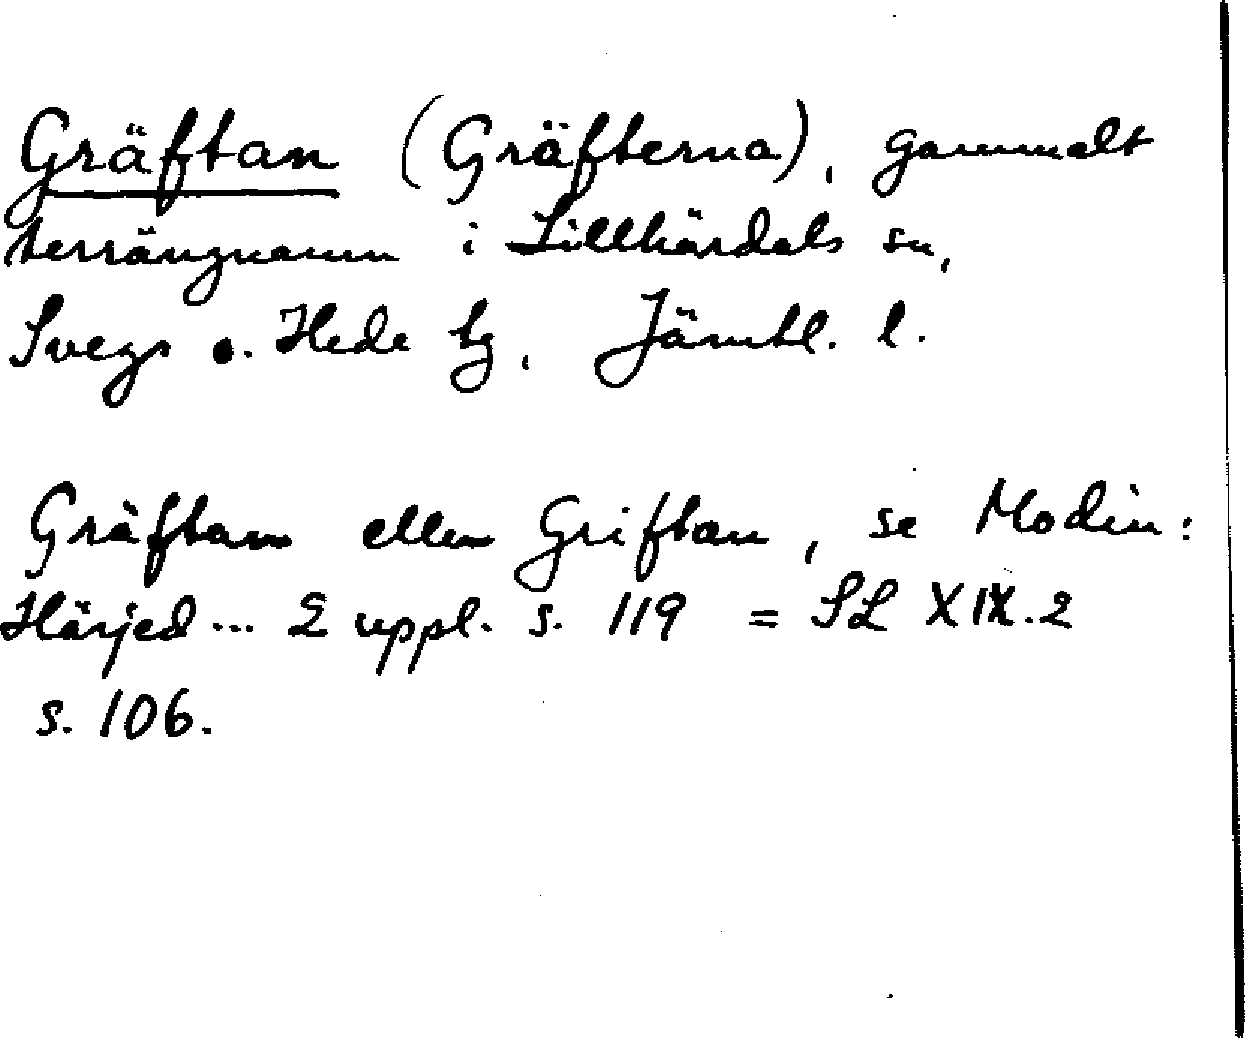 Gräftan (Gräfterna), gammalt
terrängnamn i Lillhärdals sn,
Svegs o. Hede tg, Jämtl. l.
Gräftan eller Griftan, se Modin:
Härjed... 2 uppl. s. 119 = SL XIX.2
s. 106.